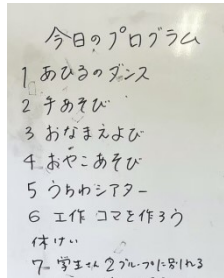 今日のプログラム
1 あひるのダンス
2 手あそび
3 おなまえよび
4 おやこあそび
5 うちわシアター
6 工作 コマを作ろう
休けい
7 学生さん 2グループに別れる